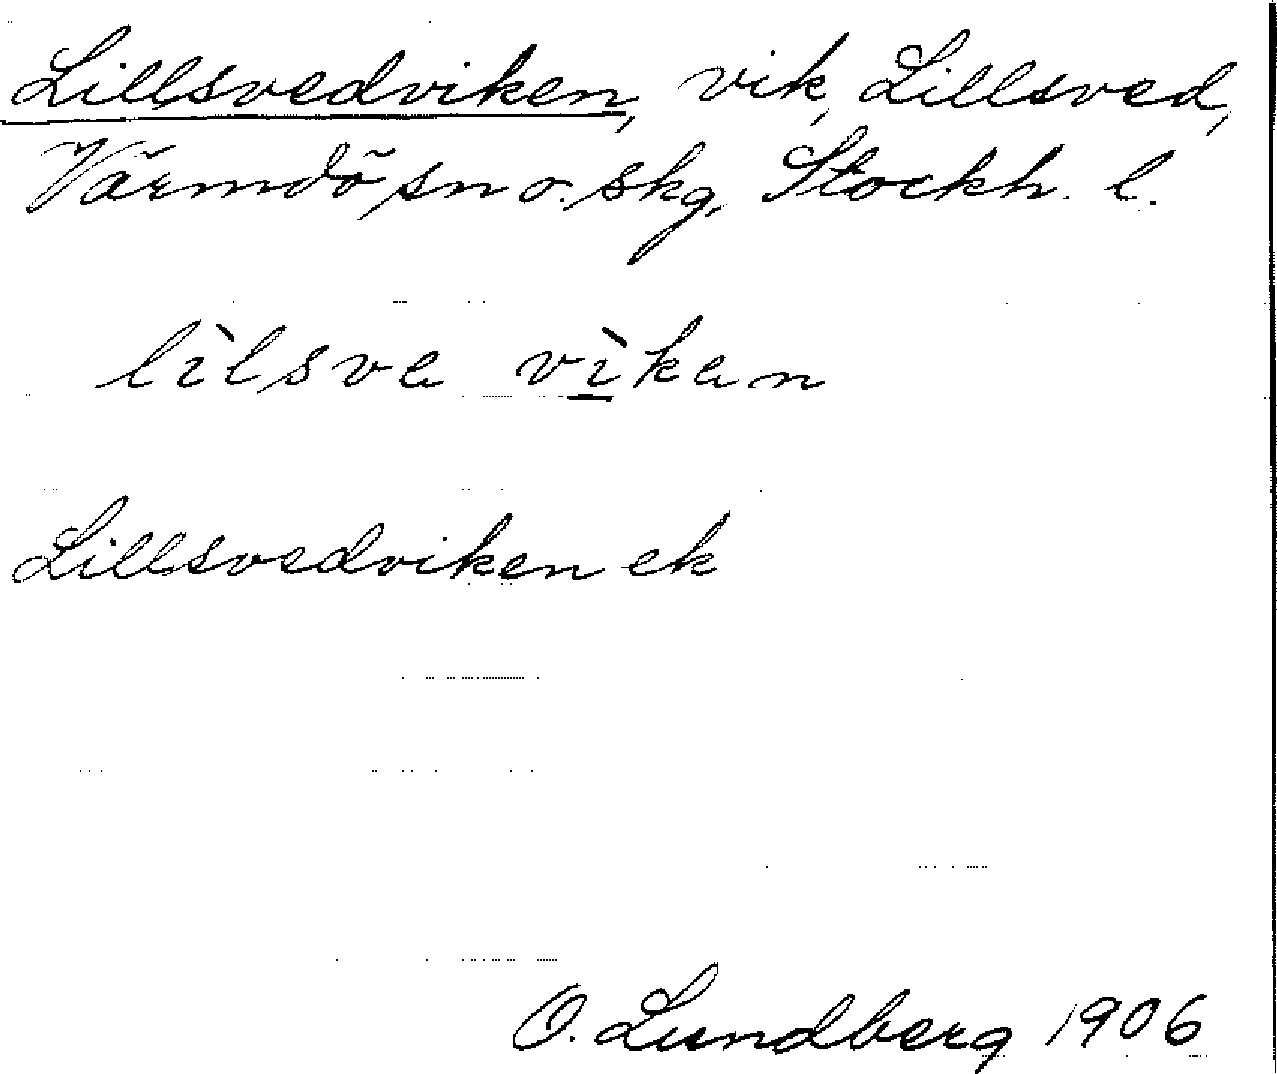 Lillsvedviken, vik, Lillsved,
Värmdö sn o. skg, Stockh. l.
lìlsva vìkan
Lillsvedviken ek
O. Lundberg 1906